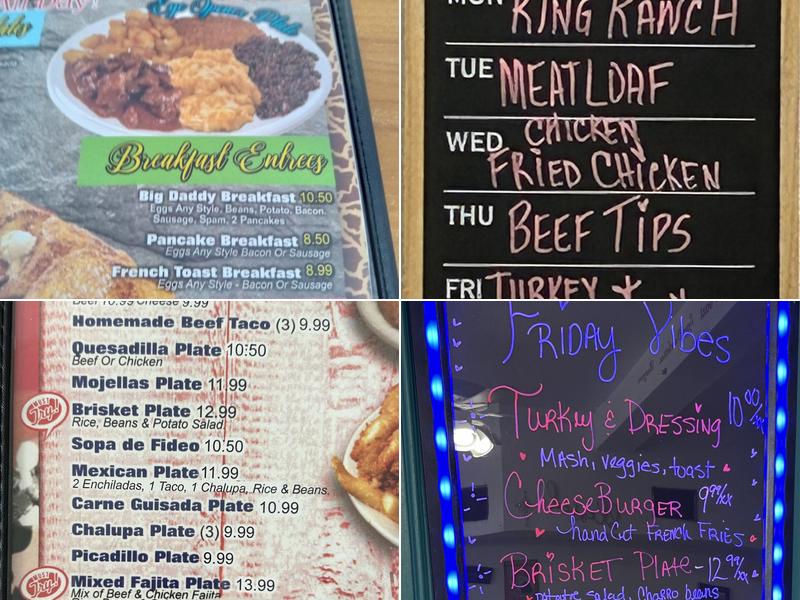 Eye Opener Plate
Breakfast Entrees
Big Daddy Breakfast 10.50
Eggs Any Style, Beans, Potato, Bacon,
Sausage, Spam, 2 Pancakes
Pancake Breakfast 8.50
Eggs Any Style Bacon Or Sausage
French Toast Breakfast 8.99
Eggs Any Style - Bacon Or Sausage
MON KING RANCH
TUE MEATLOAF
WED CHICKEN
FRIED CHICKEN
THU BEEF TIPS
FRI TURKEY +
Beef 10.99 Cheese 9.99
Homemade Beef Taco (3) 9.99
Quesadilla Plate 10:50
Beef Or Chicken
Mojellas Plate 11.99
MUST Try!
Brisket Plate 12.99
Rice, Beans & Potato Salad
Sopa de Fideo 10.50
Mexican Plate 11.99
2 Enchiladas, 1 Taco, 1 Chalupa, Rice & Beans,
Carne Guisada Plate 10.99
Chalupa Plate (3) 9.99
Picadillo Plate 9.99
MUST Try!
Mixed Fajita Plate 13.99
Mix of Beef & Chicken Fajita
FRIDAY Vibes
TURKEY & DRESSING 10.00
MASH, veggies, toast
CheeseBURGER 9.99
hand Cut FRENCH FRIES
BRISKET PLATE - 12.99
potatoe salad, Charro beans